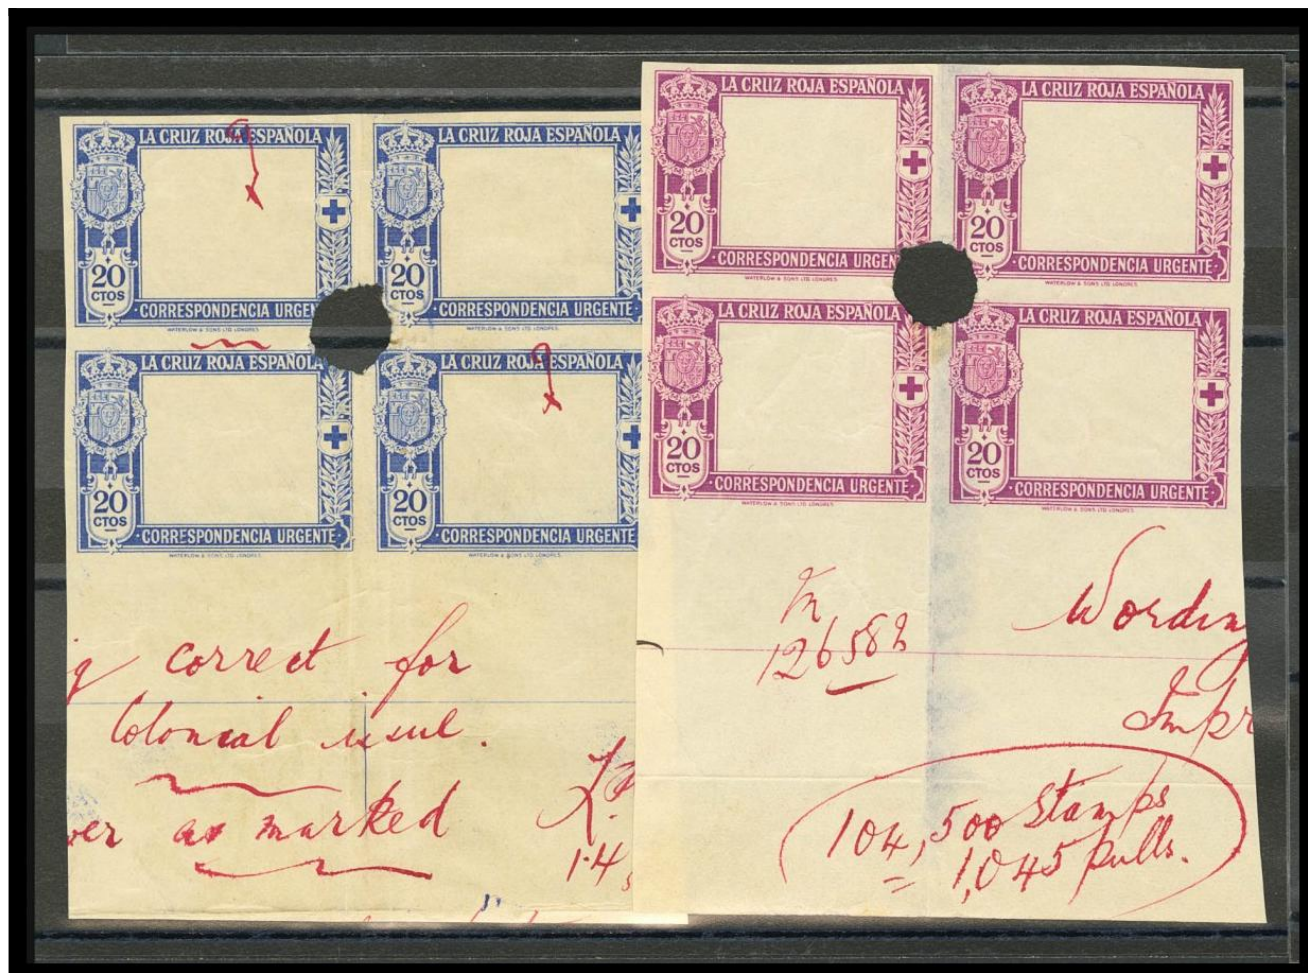 LA CRUZ ROJA ESPAÑOLA
20
CTOS
CORRESPONDENCIA URGENTE
WATERLOW & SONS LTD. LONDRES
LA CRUZ ROJA ESPAÑOLA
20
CTOS
CORRESPONDENCIA URGENTE
WATERLOW & SONS LTD. LONDRES
LA CRUZ ROJA ESPAÑOLA
20
CTOS
CORRESPONDENCIA URGENTE
WATERLOW & SONS LTD. LONDRES
LA CRUZ ROJA ESPAÑOLA
20
CTOS
CORRESPONDENCIA URGENTE
WATERLOW & SONS LTD. LONDRES
g correct for
Colonial issue.
er as marked
1.4
LA CRUZ ROJA ESPAÑOLA
20
CTOS
CORRESPONDENCIA URGEN
WATERLOW & SONS LTD. LONDRES
LA CRUZ ROJA ESPAÑOLA
20
CTOS
CORRESPONDENCIA URGENTE
WATERLOW & SONS LTD. LONDRES
LA CRUZ ROJA ESPAÑOLA
20
CTOS
CORRESPONDENCIA URGENTE
WATERLOW & SONS LTD. LONDRES
LA CRUZ ROJA ESPAÑOLA
20
CTOS
CORRESPONDENCIA URGENTE
WATERLOW & SONS LTD. LONDRES
Wordin
Impr
104,500 Stamps
= 1,045 pulls.